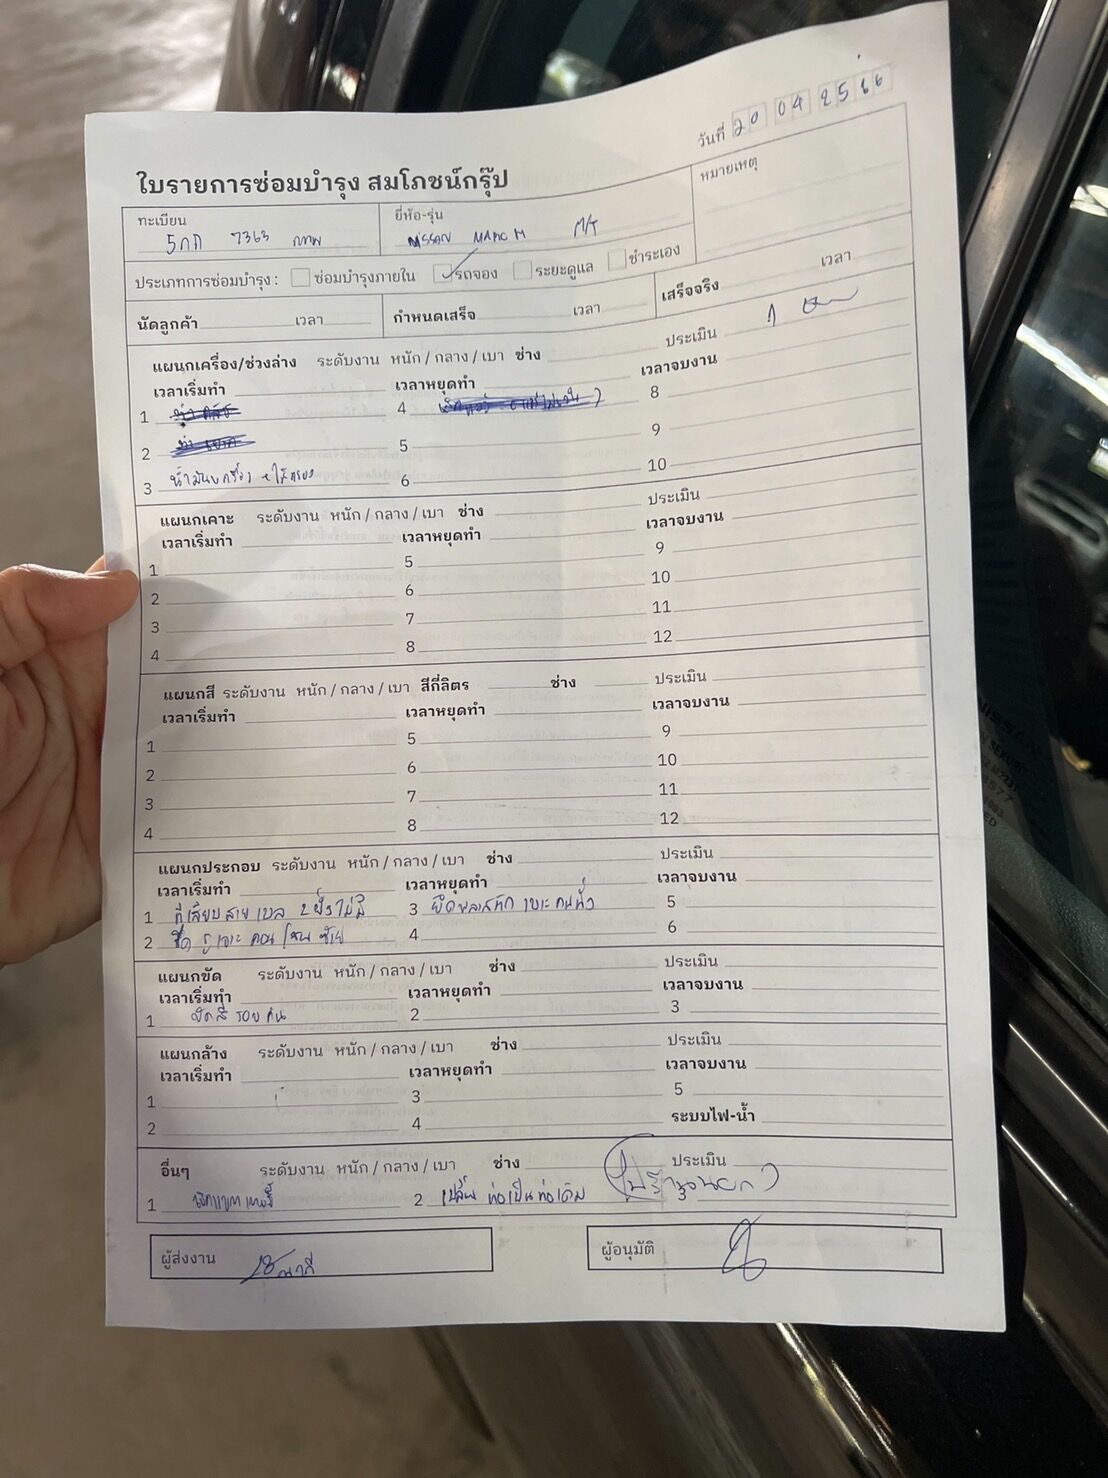 วันที่ 20 04 2566
ใบรายการซ่อมบำรุง สมโภชน์กรุ๊ป
หมายเหตุ
ทะเบียน
ยี่ห้อ-รุ่น
5กก 7363 กทพ
NISSAN MARCH M/T
ประเภทการซ่อมบำรุง : ซ่อมบำรุงภายใน รถจอง ระยะดูแล ชำระเอง
นัดลูกค้า เวลา กำหนดเสร็จ เวลา เสร็จจริง เวลา
แผนกเครื่อง/ช่วงล่าง ระดับงาน หนัก / กลาง / เบา ช่าง ประเมิน
เวลาเริ่มทำ เวลาหยุดทำ เวลาจบงาน
1 4 8
2 5 9
3 น้ำมันเครื่อง + ไส้กรอง 6 10
แผนกเคาะ ระดับงาน หนัก / กลาง / เบา ช่าง ประเมิน
เวลาเริ่มทำ เวลาหยุดทำ เวลาจบงาน
1 5 9
2 6 10
3 7 11
4 8 12
แผนกสี ระดับงาน หนัก / กลาง / เบา สีกี่ลิตร ช่าง ประเมิน
เวลาเริ่มทำ เวลาหยุดทำ เวลาจบงาน
1 5 9
2 6 10
3 7 11
4 8 12
แผนกประกอบ ระดับงาน หนัก / กลาง / เบา ช่าง ประเมิน
เวลาเริ่มทำ เวลาหยุดทำ เวลาจบงาน
1 ที่เสียบสายเบล 2 ฝั่งไม่มี 3 ยึดพลาสติก เบาะคนนั่ง 5
2 4 6
แผนกขัด ระดับงาน หนัก / กลาง / เบา ช่าง ประเมิน
เวลาเริ่มทำ เวลาหยุดทำ เวลาจบงาน
1 ขัดสี รอบคัน 2 3
แผนกล้าง ระดับงาน หนัก / กลาง / เบา ช่าง ประเมิน
เวลาเริ่มทำ เวลาหยุดทำ เวลาจบงาน
1 3 5
2 4 ระบบไฟ-น้ำ
อื่นๆ ระดับงาน หนัก / กลาง / เบา ช่าง ประเมิน
1 2 เปลี่ยนท่อเป็นท่อเดิม
ผู้ส่งงาน
ผู้อนุมัติ